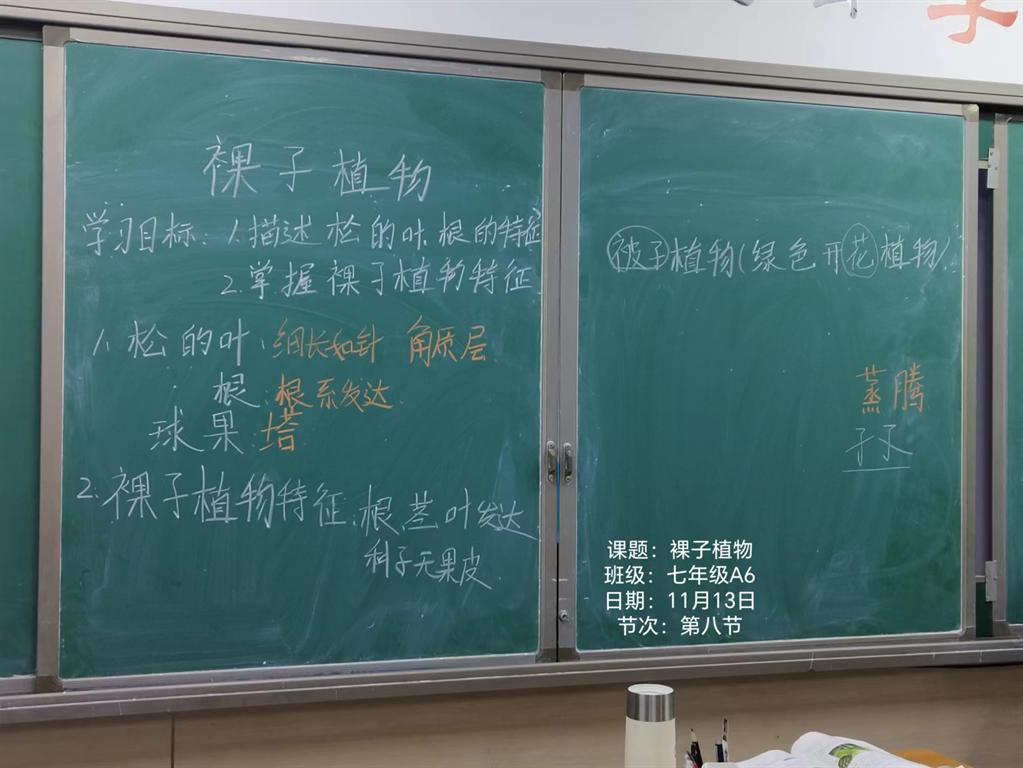 裸子植物
学习目标：1.描述松的叶、根的特征
2.掌握裸子植物特征
1、松的叶：细长如针 角质层
根：根系发达
球果：塔
2.裸子植物特征：根茎叶发达
种子无果皮
被子植物(绿色开花植物)
蒸腾
子
课题：裸子植物
班级：七年级A6
日期：11月13日
节次：第八节